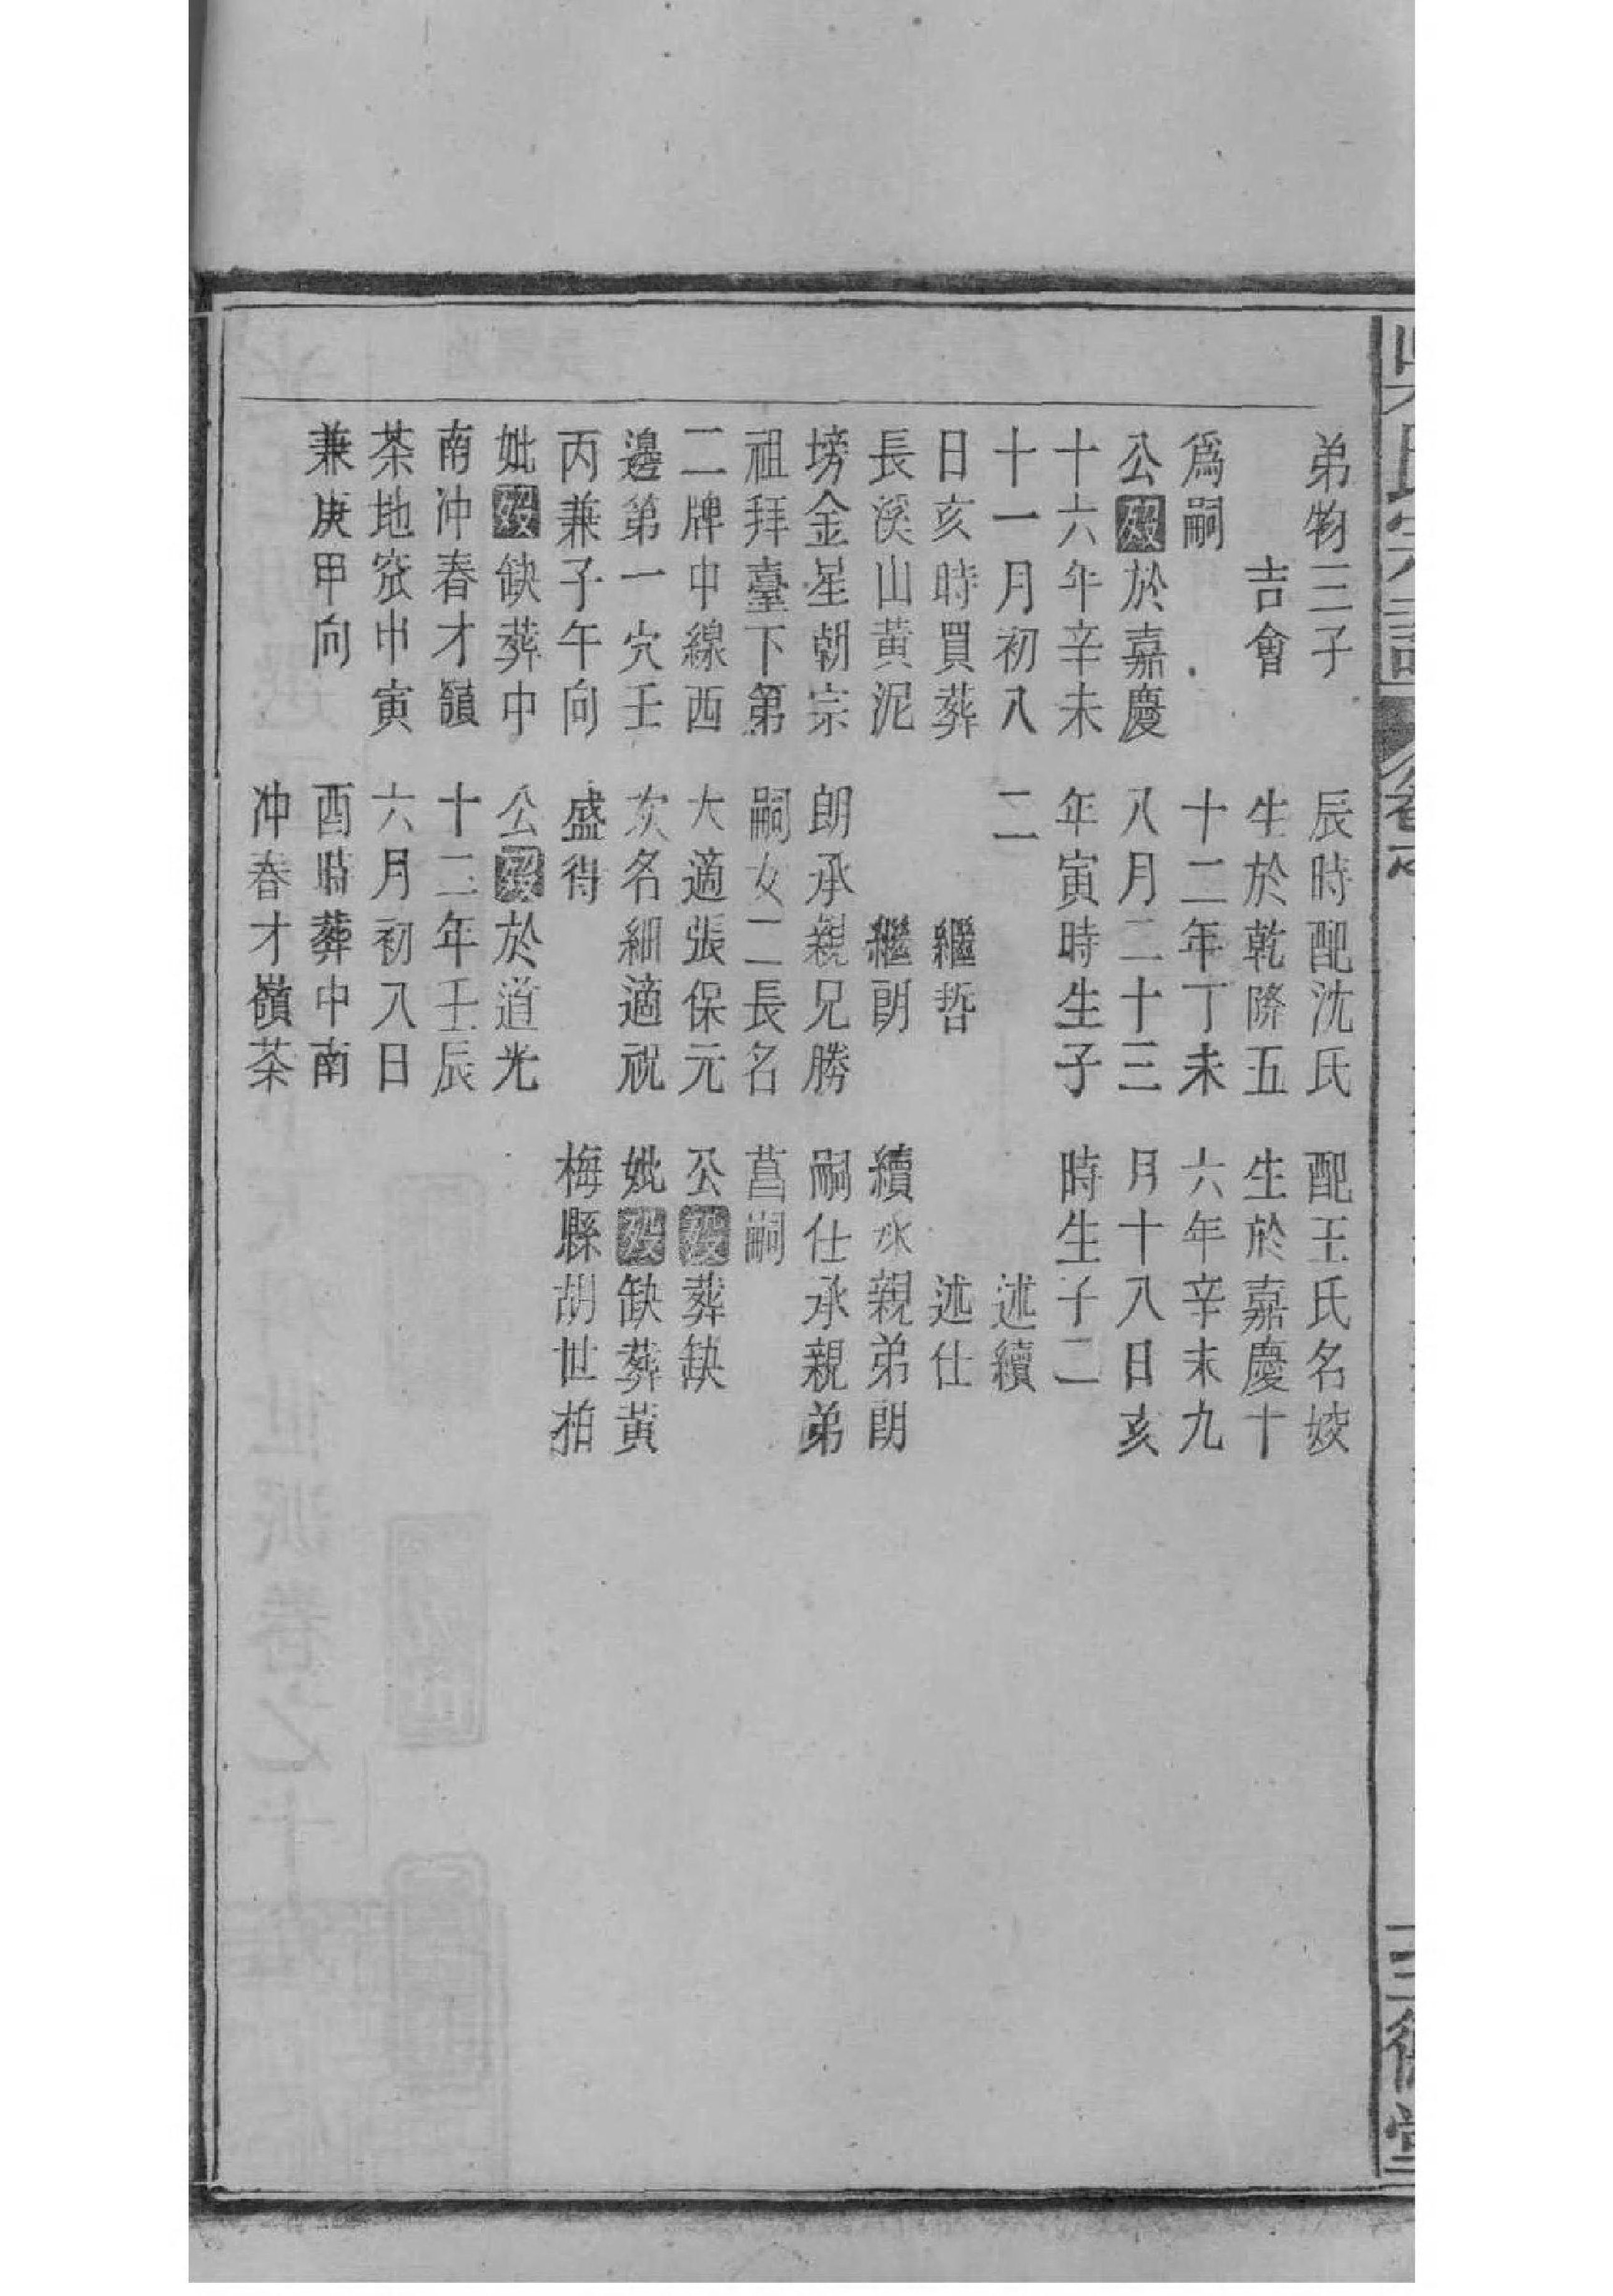 吳氏宗譜
三德堂
弟物三子
吉會
爲嗣
公歿於嘉慶
十六年辛未
十一月初八
日亥時買葬
長溪山黃泥
塝金星朝宗
祖拜臺下第
二牌中線西
邊第一穴壬
丙兼子午向
妣歿缺葬中
南冲春才嶺
茶地窊中寅
兼庚甲向
辰時配沈氏
生於乾隆五
十二年丁未
八月二十三
年寅時生子
二
繼哲
繼朗
朗承親兄勝
嗣女二長名
大適張保元
次名細適祝
盛得
公歿於道光
十二年壬辰
六月初八日
酉時葬中南
冲春才嶺茶
配王氏名姣
生於嘉慶十
六年辛未九
月十八日亥
時生子二
述續
述仕
續承親弟朗
嗣仕承親弟
菖嗣
公歿葬缺
妣歿缺葬黃
梅縣胡世柏